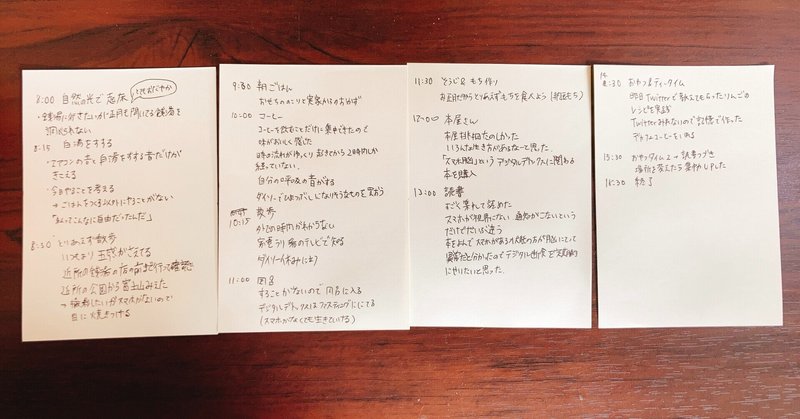 8:00 自然の光で起床
とてもおだやか
・銭湯に行きたいが正月も開いてる銭湯を調べられない
8:15 白湯をすする
・エアコンの音と白湯をすする音だけが
きこえる
・今日やることを考える
→ごはんをつくる以外にやることがない
「私ってこんなに自由だったんだ」
8:30 とりあえず散歩
いつもより五感がさえてる
近所の銭湯の店の前まで行って確認
近所の公園から富士山みえた
→撮影したいがスマホがないので
目に焼きつける
9:30 朝ごはん
おせちののこりと実家からのおかず
10:00 コーヒー
コーヒーを飲むことだけに集中できたので
味がおいしく感じた
時の流れがゆっくり 起きてから2時間しか
経っていない
自分の呼吸の音がする
ダイソーでひまつぶしになりそうなものを買おう
10:15 散歩
外だと時間がわからない
家電うり場のテレビで知る
ダイソー休みに
11:00 風呂
することがないので風呂に入る
デジタルデトックスはファスティングににてる
(スマホがなくても生きていける)
11:30 そうじ& もち作り
お正月だからとりあえずもちを食べよう
12:00 本屋さん
本屋さんたのしかった
いろんな生き方があるなーって思った
「スマホ脳」というデジタルデトックスに関わる
本を購入
13:00 読書
すごく集中して読めた
スマホが視界にない、通知がこないという
だけでだいぶ違う
異常だと分かったのでデジタル断食を定期的
にやりたいと思った。
14:30 おやつ&ティータイム
昨日Twitterで教えてもらったりんごの
レシピを実践
Twitterみれないので記憶で作った
デカフェコーヒーをいれる
15:30 おやつタイム2→読書つづき
場所を変えたら集中力UPした
16:30 終了